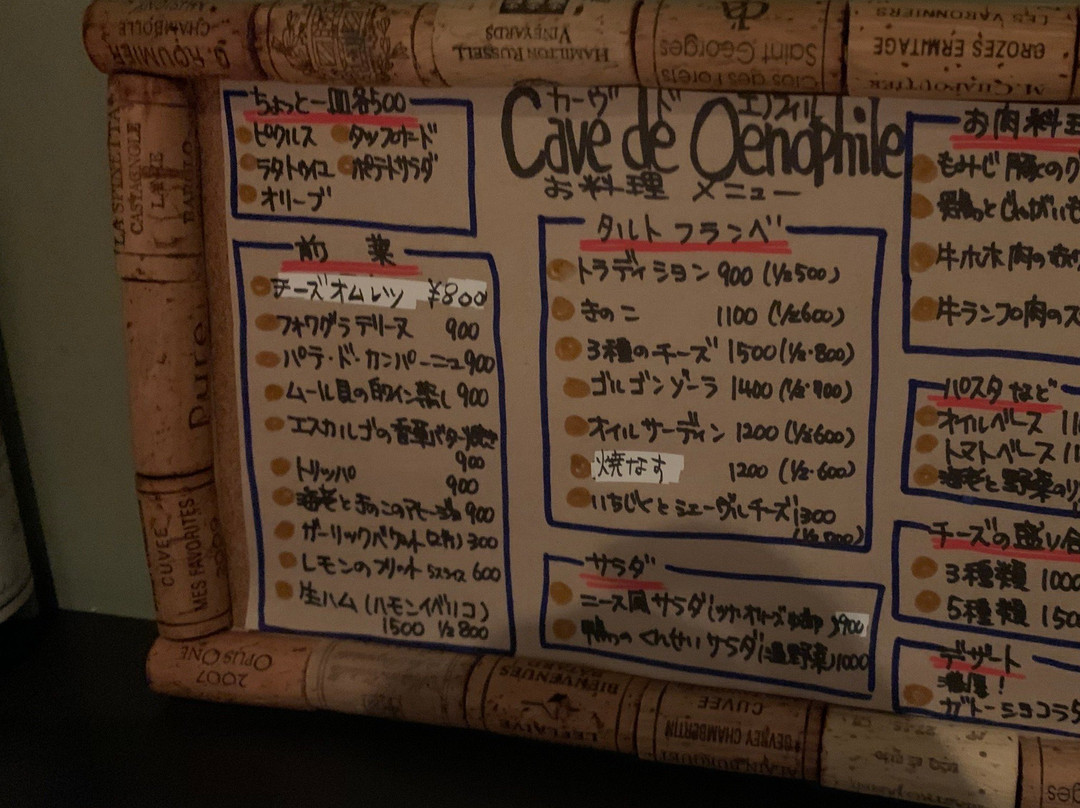 カーヴ ド エノフィル
Cave de Oenophile
お料理 メニュー
ちょっと一皿各500
ピクルス タップナード
ラタトゥイユ ポテトサラダ
オリーブ
前菜
チーズオムレツ ¥800
フォワグラテリーヌ 900
パテ・ド・カンパーニュ 900
ムール貝の白ワイン蒸し 900
エスカルゴの香草バター焼き
900
トリッパ 900
海老ときのこのアヒージョ 900
ガーリックバゲット(2ヶ) 300
レモンのフリット 5スライス 600
生ハム (ハモンイベリコ)
1500 ½800
タルトフランベ
トラディション 900 (½500)
きのこ 1100 (½600)
3種のチーズ 1500 (½・800)
ゴルゴンゾーラ 1400 (½・700)
オイルサーディン 1200 (½600)
焼なす 1200 (½・600)
いちじくとシェーヴルチーズ 1300
サラダ
ニース風サラダ 900
鴨のくんせいサラダ(温野菜)1000
お肉料理
もみじ豚のク
牛ホホ肉の赤ワ
牛ランプ肉のス
パスタなど
オイルベース 11
トマトベース 11
海老と野菜のリ
チーズの盛り合
3種類 1000
5種類 150
デザート
濃厚!
ガトーショコラ5
G. ROUMIER
CHAMBOLLE
HAMILTON RUSSELL
VINEYARDS
Saint Georges
Clos des Forets
CROZES ERMITAGE
LES VARONNIERS
M. CHAPOUTIER
LA SPINETTA
CASTAGNOLE
LANZE
Pure
CUVEE
MES FAVORITES
OPUS ONE
2007
BIENVENUES
BATARD
LEFLAIVE
CUVEE
GEVREY CHAMBERTIN